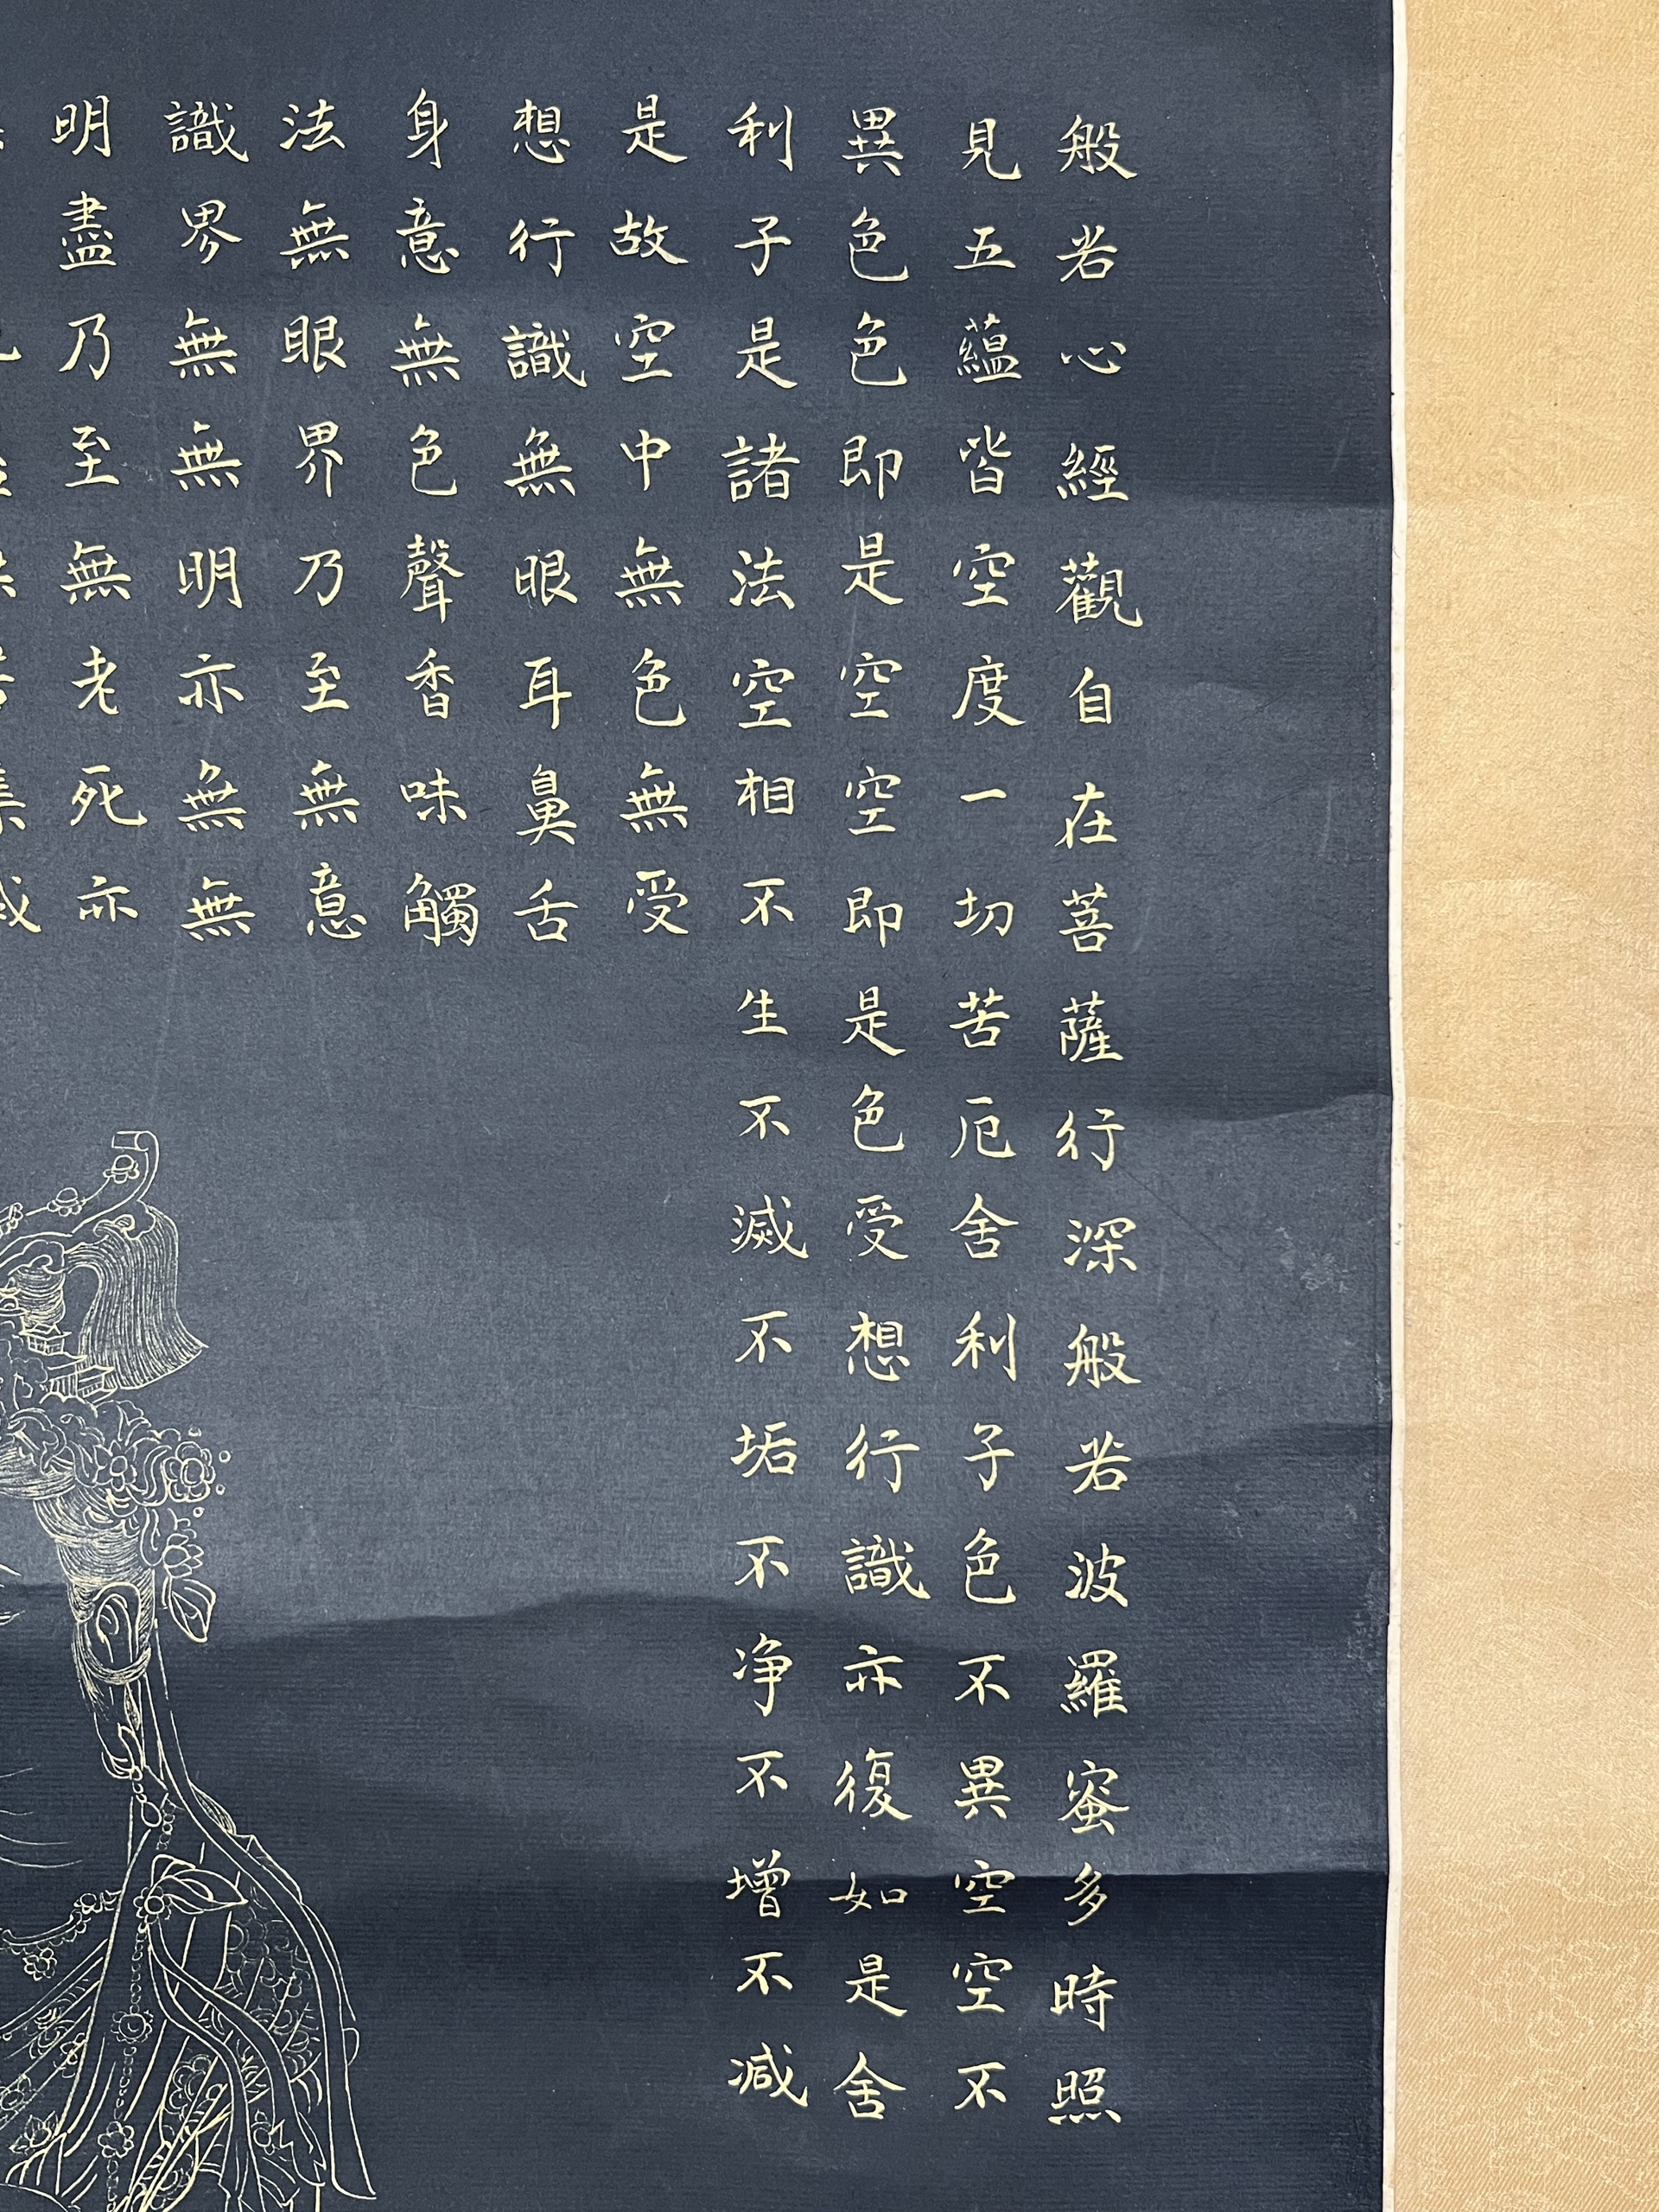 般若心經觀自在菩薩行深般若波羅蜜多時照
見五蘊皆空度一切苦厄舍利子色不異空空不
異色色即是空空即是色受想行識亦復如是舍
利子是諸法空相不生不滅不垢不净不增不減
是故空中無色無受
想行識無眼耳鼻舌
身意無色聲香味觸
法無眼界乃至無意
識界無無明亦無無
明盡乃至無老死亦